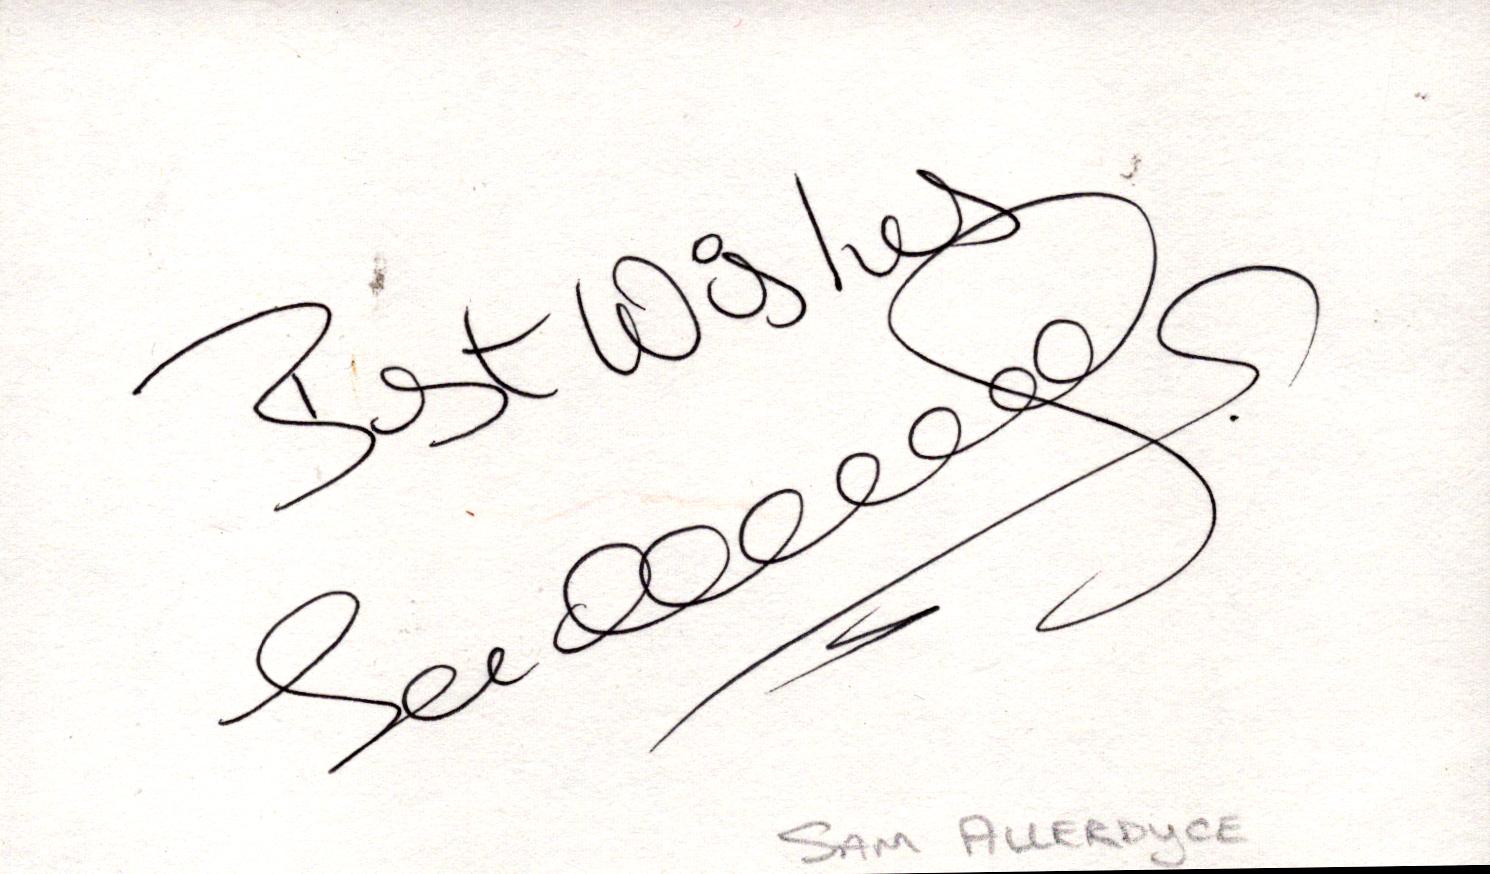 Best Wishes
Sam
SAM ALLERDYCE